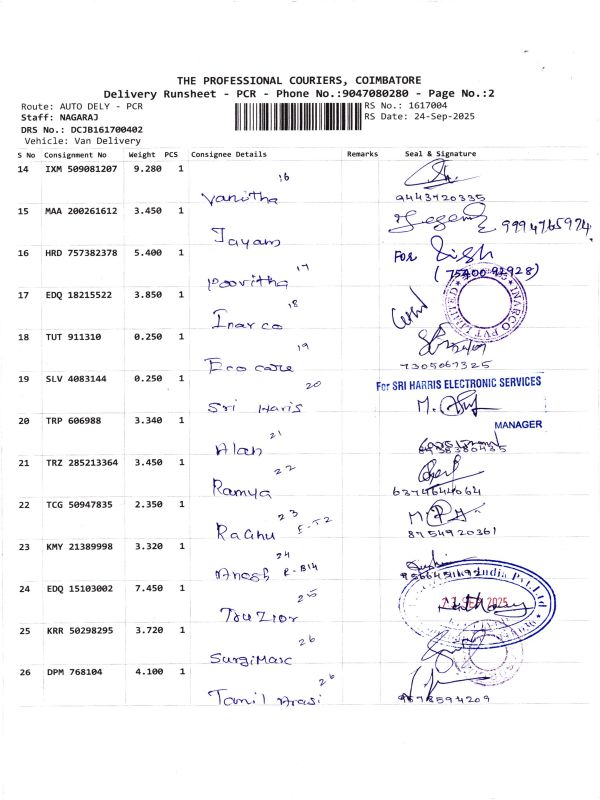 THE PROFESSIONAL COURIERS, COIMBATORE
Delivery Runsheet - PCR - Phone No.:9047080280 - Page No.:2
Route: AUTO DELY - PCR RS No.: 1617004
Staff: NAGARAJ RS Date: 24-Sep-2025
DRS No.: DCJB161700402
Vehicle: Van Delivery
S No Consignment No Weight PCS Consignee Details Remarks Seal & Signature
14 IXM 509081207 9.280 1
16
Vanitha 9443720335
15 MAA 200261612 3.450 1
9994765974
Jayam
16 HRD 757382378 5.400 1 For
17
Poovitha
17 EDQ 18215522 3.850 1
18
Inarco INARCO PVT LIMITED
18 TUT 911310 0.250 1
19
Eco care 7305067325
19 SLV 4083144 0.250 1
20 For SRI HARRIS ELECTRONIC SERVICES
Sri Haris
20 TRP 606988 3.340 1 MANAGER
21
Alan
21 TRZ 285213364 3.450 1
22
Ramya 6374644064
22 TCG 50947835 2.350 1
23
Raghu F-T2 8754920361
23 KMY 21389998 3.320 1
24
R-B14
24 EDQ 15103002 7.450 1 India Pvt Ltd
25 SEP 2025
TruZior
25 KRR 50298295 3.720 1
26
SurgiMarc
26 DPM 768104 4.100 1
26
Tamil Arasi 9678594209